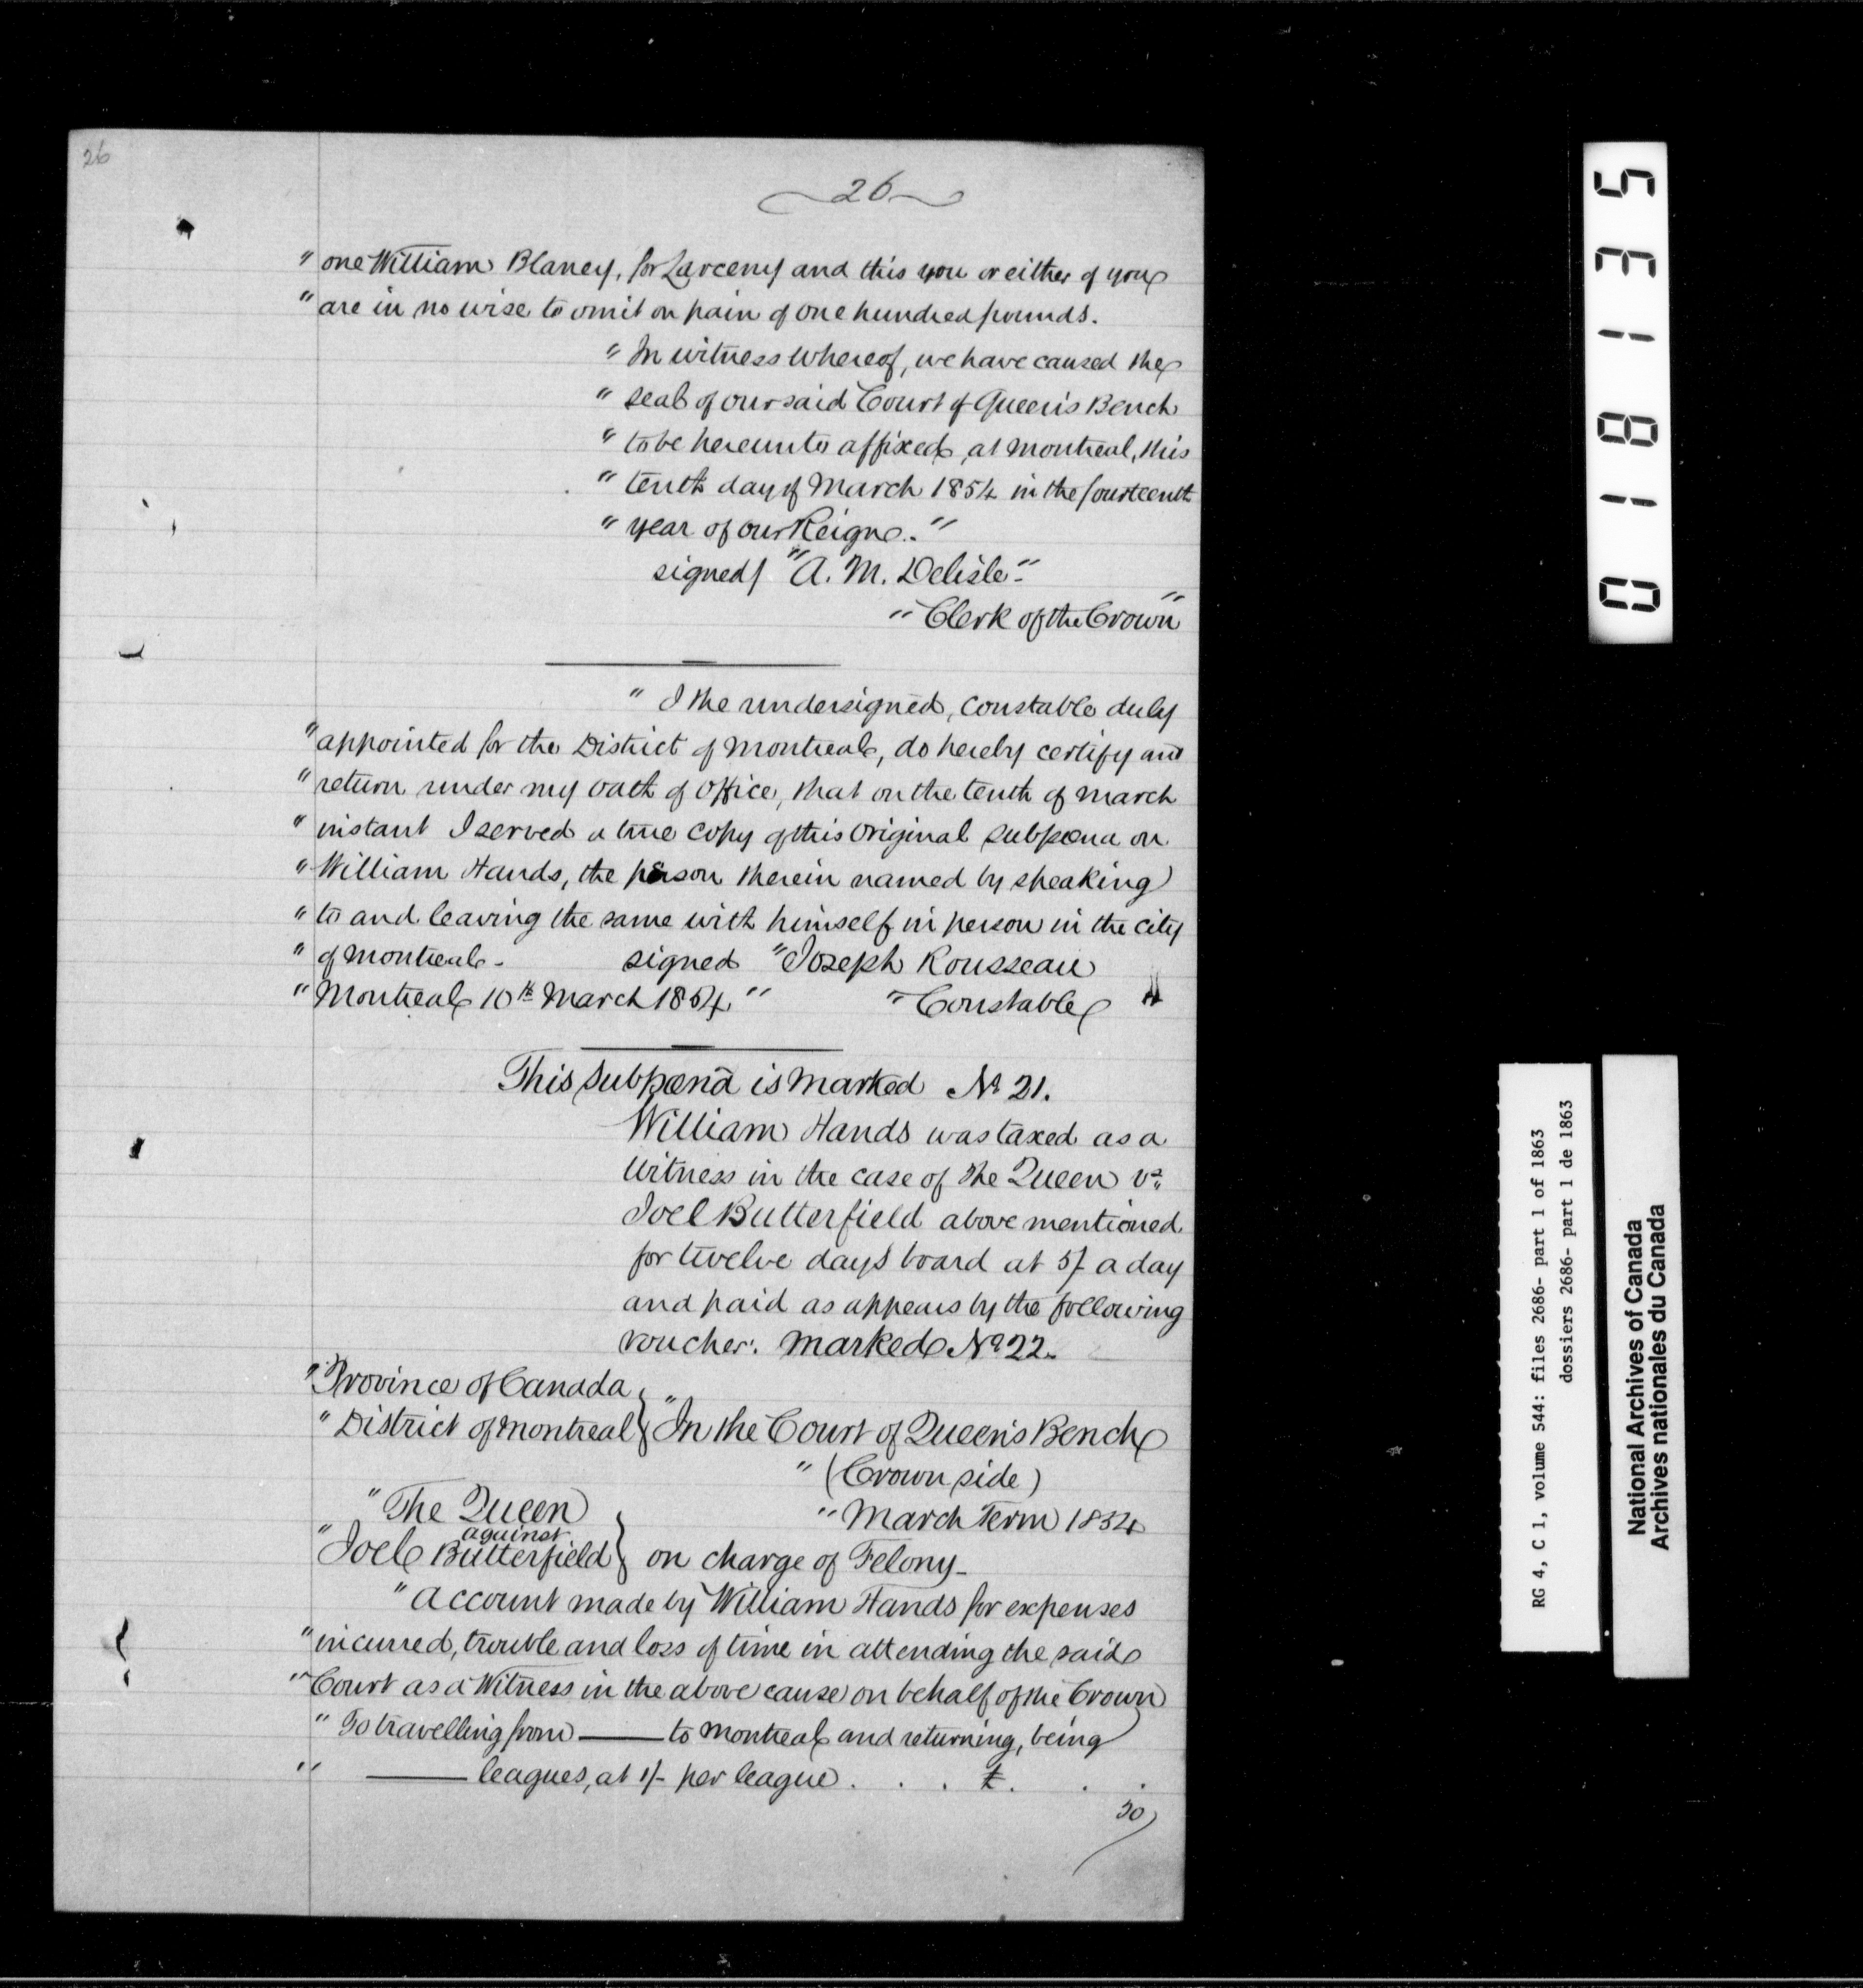 26
26
" one William Blaney, for Larceny and this you or either of you
" are in no wise to omit on pain of one hundred pounds.
" In witness whereof, we have caused the
" seal of our said Court of Queen's Bench
" to be hereunto affixed, at Montreal, this
" tenth day of March 1854 in the fourteenth
" year of our Reign. "
signed/ "A. M. Delisle"
" Clerk of the Crown "
" I the undersigned, Constable duly
" appointed for the District of Montreal, do hereby certify and
" return under my oath of office, that on the tenth of March
" instant I served a true copy of this original subpœna on
" William Hands, the person therein named by speaking
" to and leaving the same with himself in person in the city
" of Montreal. signed "Joseph Rousseau
" Montreal 10th March 1854 " " Constable "
This subpœna is marked No 21.
William Hands was taxed as a
Witness in the case of the Queen vs
Joel Butterfield above mentioned
for twelve days board at 5/ a day
and paid as appears by the following
voucher. Marked No 22.
" Province of Canada
" District of Montreal } " In the Court of Queen's Bench
" (Crown side)
" The Queen " March Term 1854
against
" Joel Butterfield } on charge of Felony -
" Account made by William Hands for expenses
" incurred, trouble and loss of time in attending the said
" Court as a Witness in the above cause on behalf of the Crown
" To travelling from —— to Montreal and returning, being
" —— leagues, at 1/- per league . . . £ . . .
018135
RG 4, C 1, volume 544: files 2686- part 1 of 1863
dossiers 2686- part 1 de 1863
National Archives of Canada
Archives nationales du Canada